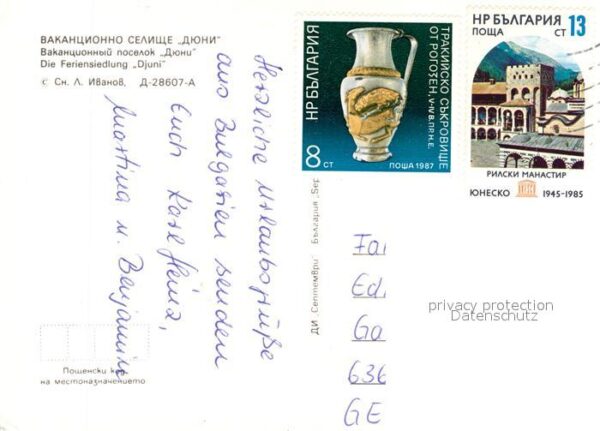 ВАКАНЦИОННО СЕЛИЩЕ „ДЮНИ“
Ваканционный поселок „Дюни“
Die Feriensiedlung „Djuni“
с Сн. Л. Иванов, Д-28607-А
НР БЪЛГАРИЯ
ТРАКИЙСКО СЪКРОВИЩЕ
ОТ РОГОЗЕН, V-IV В. ПР. Н. Е.
8 СТ
ПОЩА 1987
НР БЪЛГАРИЯ
ПОЩА
СТ 13
РИЛСКИ МАНАСТИР
ЮНЕСКО 1945-1985
Herzliche Urlaubsgrüße
aus Bulgarien senden
Euch Karl Heinz,
Martina u. Benjamin
ДИ „Септември“ България
Fa
Ed
Ga
636
GE
privacy protection
Datenschutz
Пощенски
на местоназначението